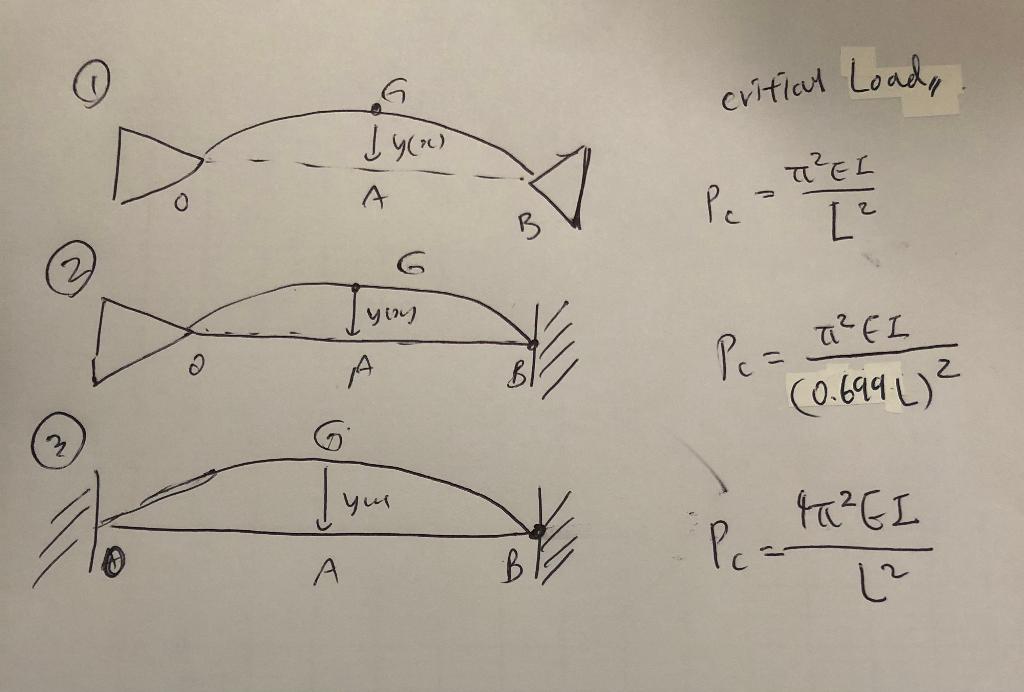 ①
G
y(x)
O
A
B
critical Load,,
P_c = π²EI / L²
②
G
y(x)
O
A
B
P_c = π²EI / (0.699L)²
③
G
y(x)
A
B
P_c = 4π²EI / L²